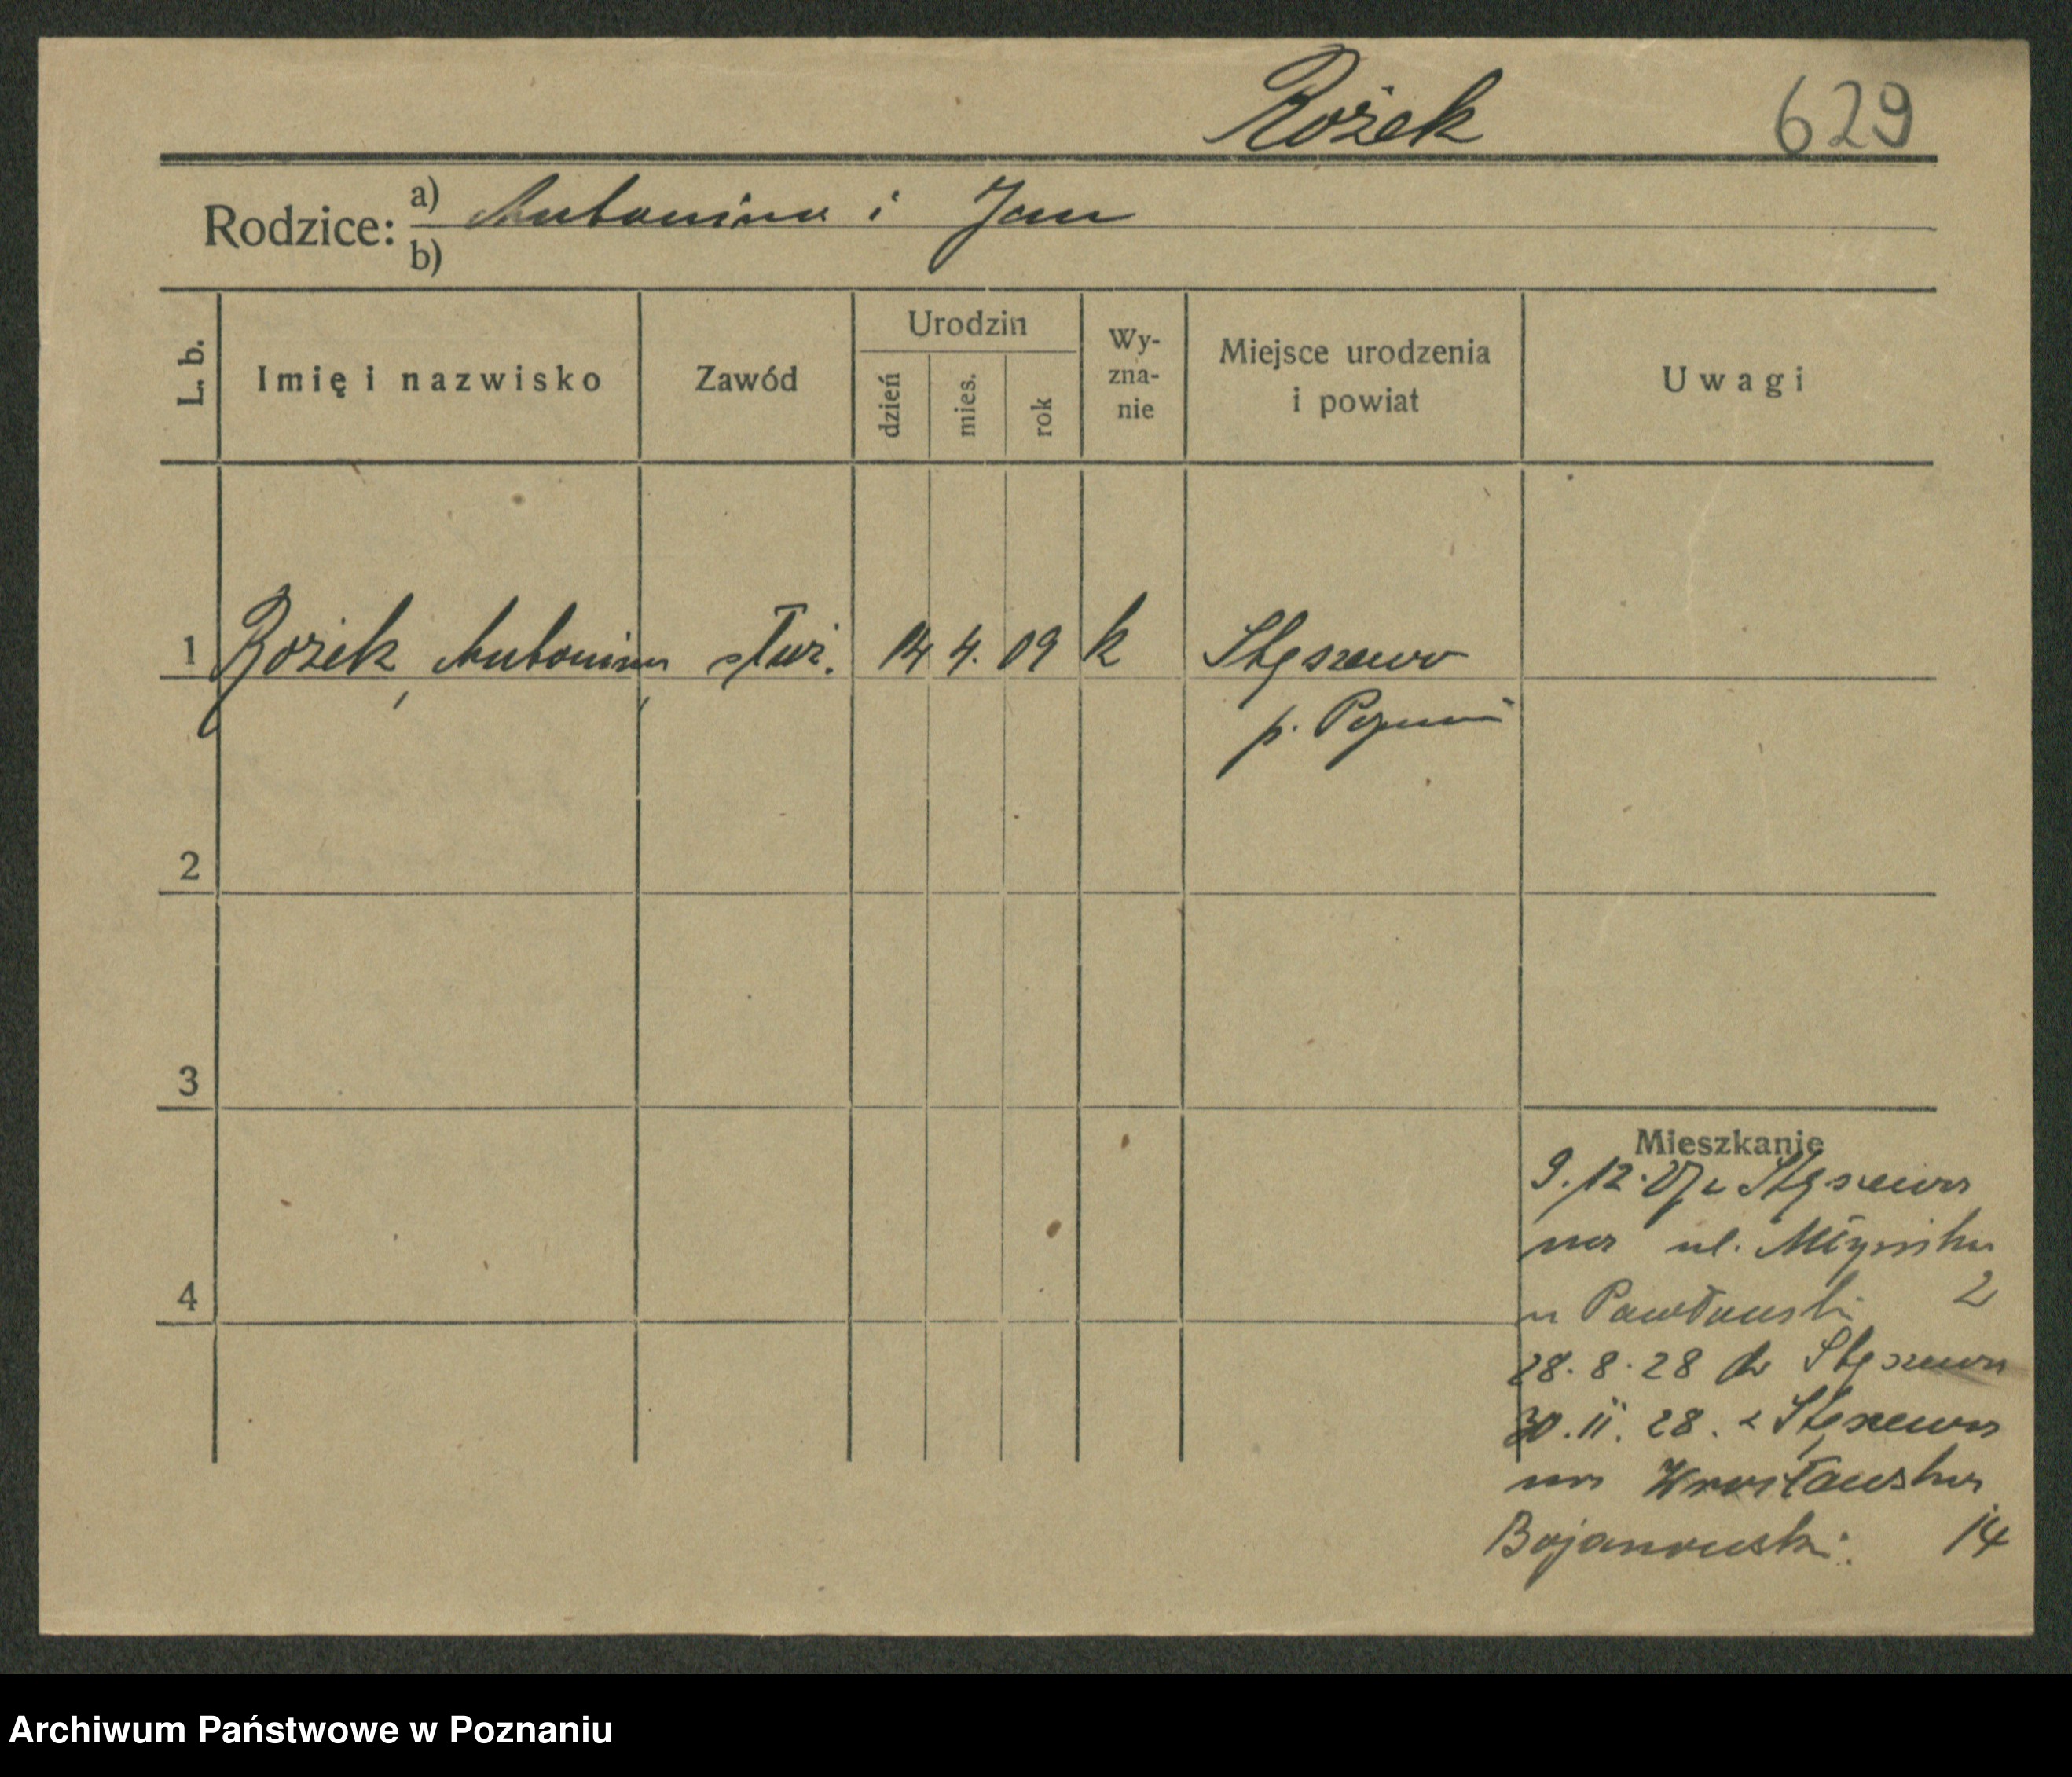 Rożek 629
Rodzice: a) Antonina i Jan
b)
L. b.
Imię i nazwisko
Zawód
Urodzin
dzień
mies.
rok
Wy-
zna-
nie
Miejsce urodzenia
i powiat
Uwagi
1 Rożek Antonina służ. 14 4. 09 k Stęszewo
p. Poznań
2
3
4
Mieszkanie
9.12.27 z Stęszewa
na ul. Młyńska
2
u Pawłowski
28.8.28 do Stęszewa
30.11.28. z Stęszewa
na Wrocławska
Bojanowski. 14
Archiwum Państwowe w Poznaniu